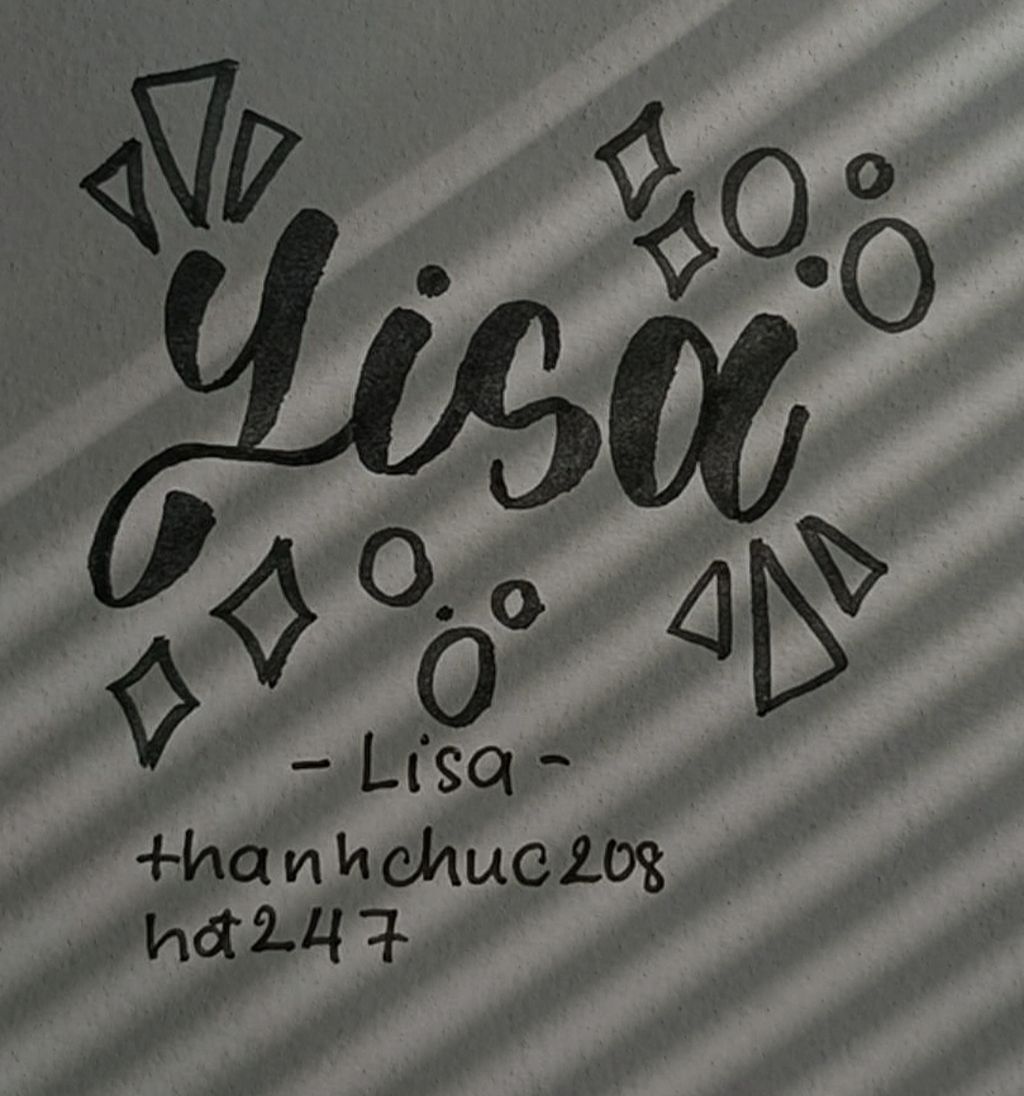 Lisa
- Lisa -
thanhchuc208
hot247